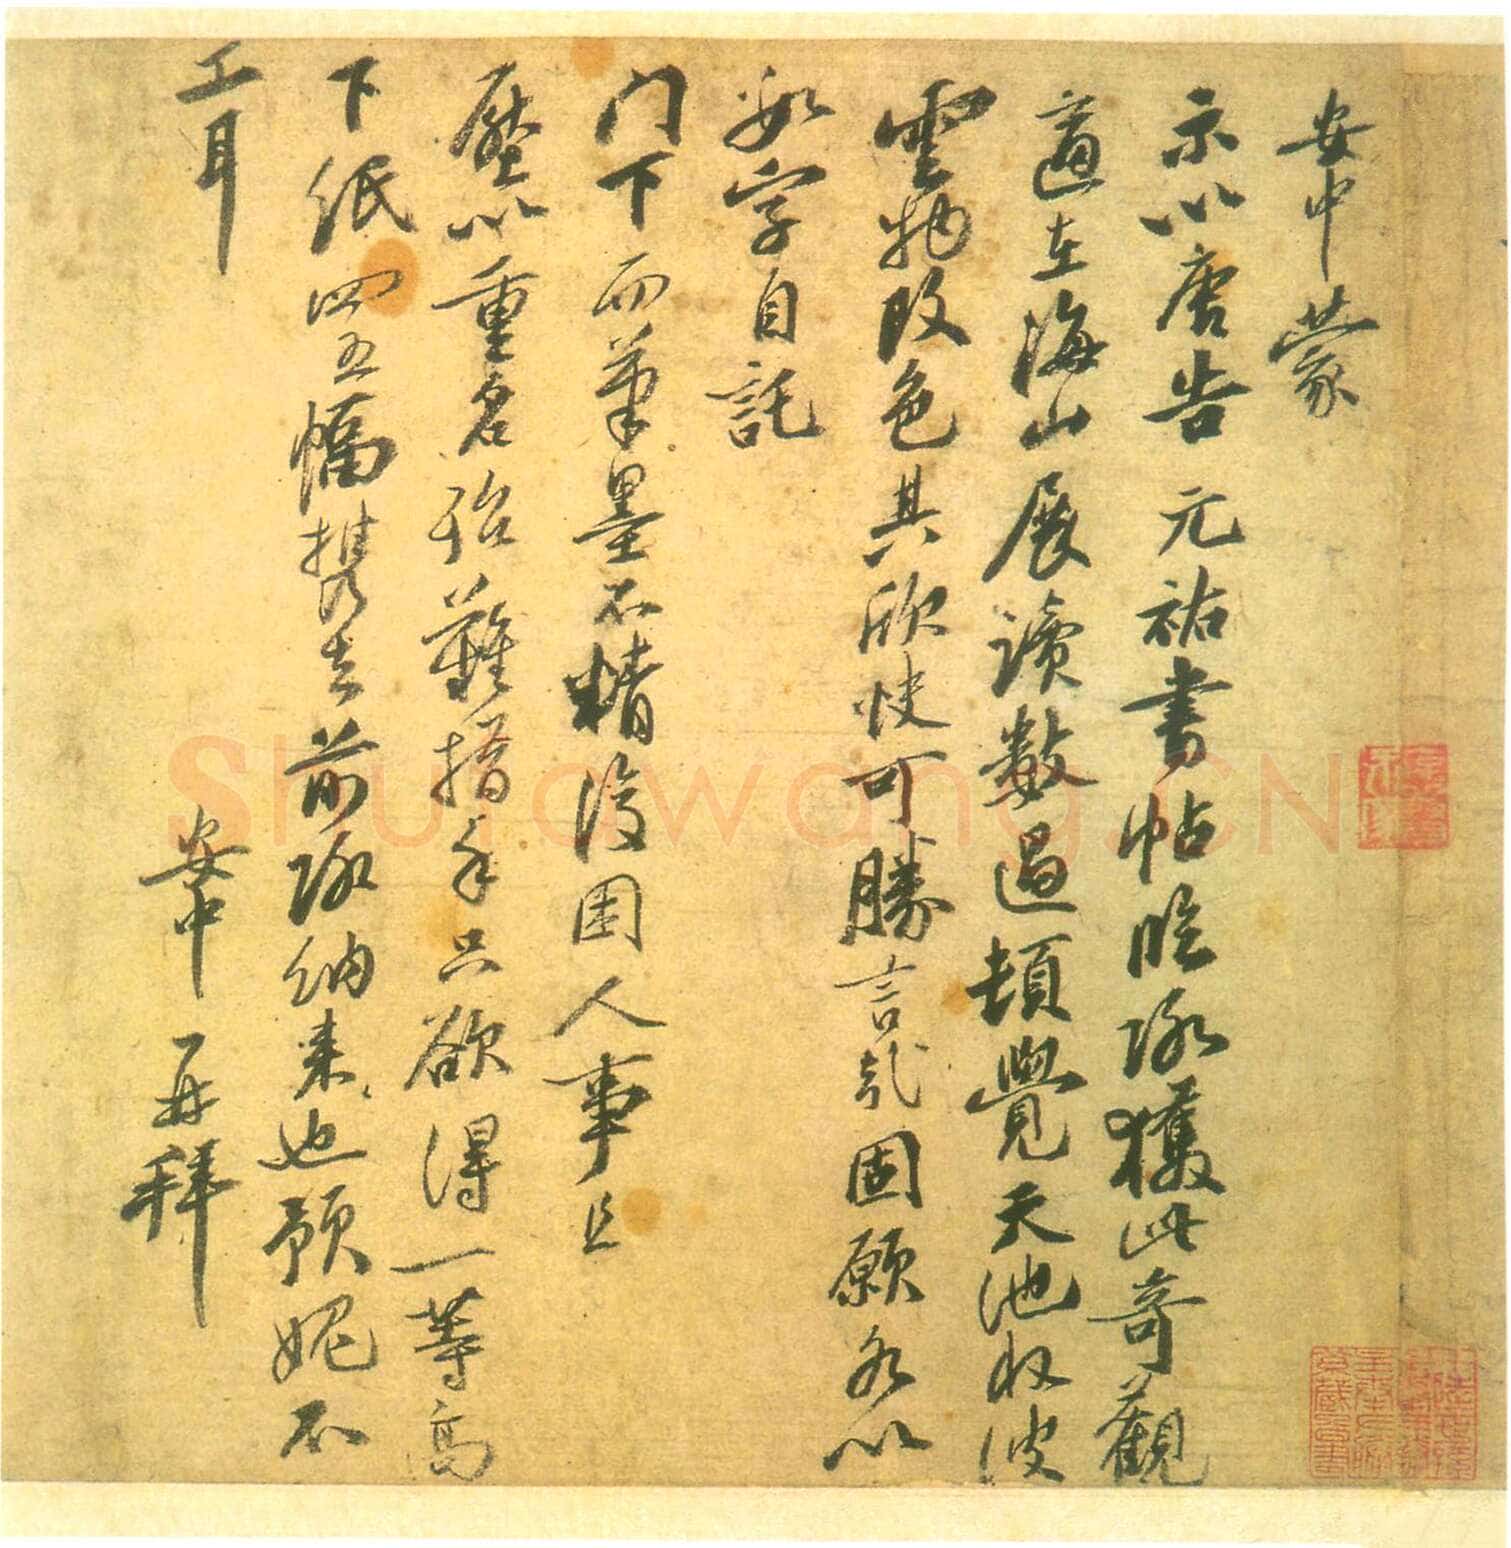 安中蒙
示以唐告元祐書帖臨獲此奇觀
適在海山展讀數過頓覺天池收波
雲物改色其欣快可勝言哉固願各以
數字自託
门下而筆墨不精復困人事且
壓以重名殆難措手只欲得一等高
下紙四五幅携去前納来也預媿不
工耳
安中再拜
Shufawang.CN